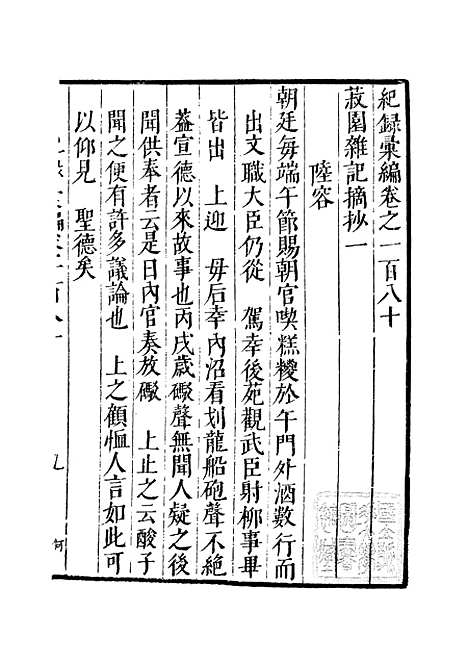 紀録彙編卷之一百八十
菽園雜記摘抄一
陸容
朝廷每端午節賜朝官喫糕糭於午門外酒數行而
出文職大臣仍從　駕幸後苑觀武臣射柳事畢
皆出　上迎　毋后幸內沼看划龍船砲聲不絶
葢宣德以來故事也丙戌歲礮聲無聞人疑之後
聞供奉者云是日內官奏放礮　上止之云酸子
聞之便有許多議論也　上之顧恤人言如此可
以仰見　聖德矣